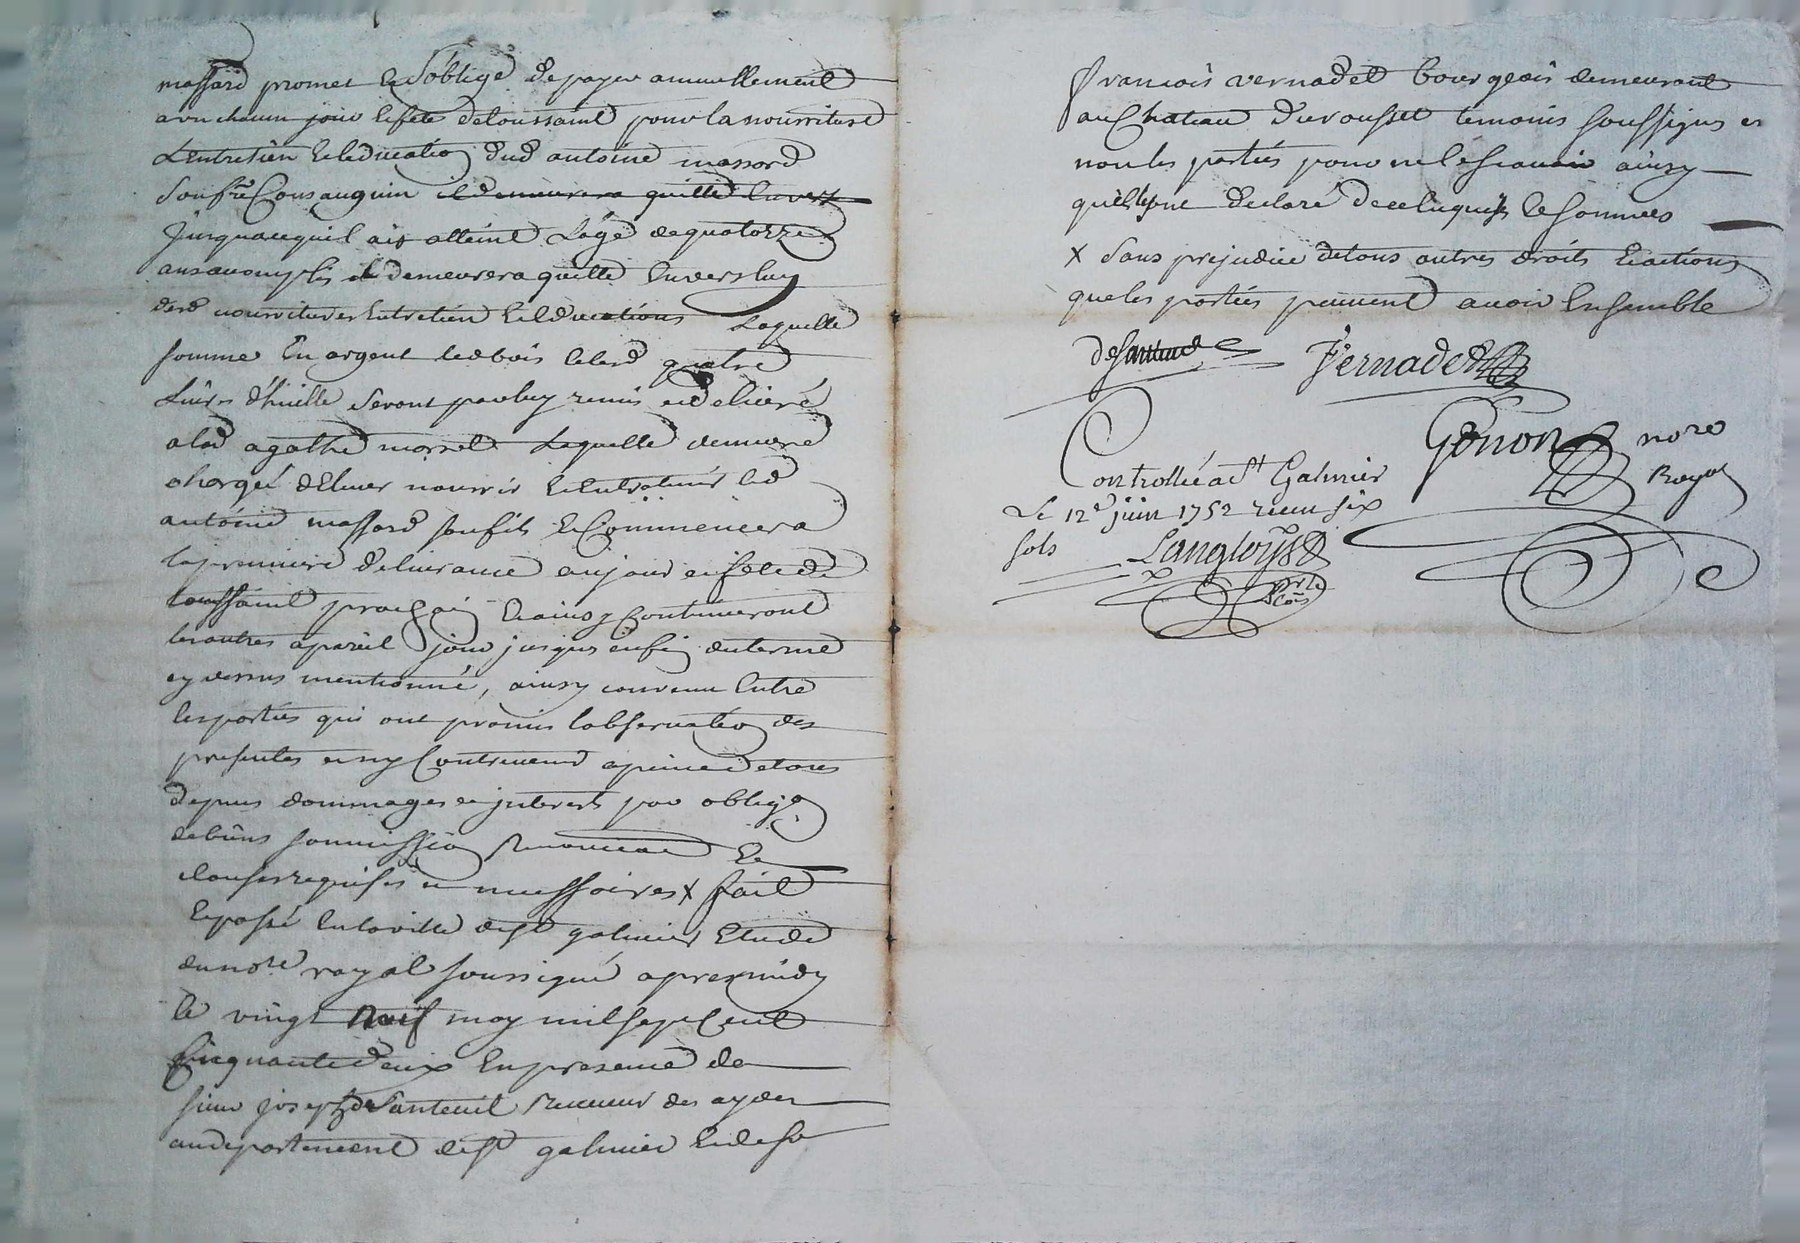 massard promet et s'oblige de payer annuellement
a un chacun jour et fete de toussaint pour la nourriture
L'entretien et leducatio dud antoine massard
son fre Consanguin il demeurera quitte Envers
Jusqua ce quil ait atteint L'age de quatorze
ans accomplis il demeurera quitte Envers luy
desd nourritures Entretien et Educations Laquelle
somme En argent led bois et lesd quatre
Livres d'huille seront par luy remis et delivré
a lad agathe morel Laquelle demeure
chargé d'Elever nourrir et Entretenir led
antoine massard son fils et Commencera
la premiere delivrance au jour et fete de
toussaint prochain et ainsy Continueront
les autres a pareil jour jusques en fin du terme
cy dessus mentionné, ainsy convenu Entre
les parties qui ont promis l'observatio des
presentes et ny Contrevenir a peine de tous
depens dommages et interets par oblige
de biens soummissio Renonciad et
clauses requises et necessaires x fait
et passé En la ville de st galmier Etude
du nore royal soussigné apres midy
le vingt neuf may mil sept Cent
Cinquante deux En presence de
sieur joseph de Santeuil Receveur des aydes
au departement de st galmier et de sr
francois vernadet bourgeois demeurant
au Chateau du rousset temoins soussignes et
non les parties pour ne le scavoir ainsy
quelles ont declaré de ce Enquises et sommées
x sans prejudice de tous autres droits et actions
que les parties peuvent avoir Ensemble
deSanteuil Vernadet
Gonon nore
Royal
Controllé a St Galmier
Le 12e juin 1752 recu six
sols Langloys